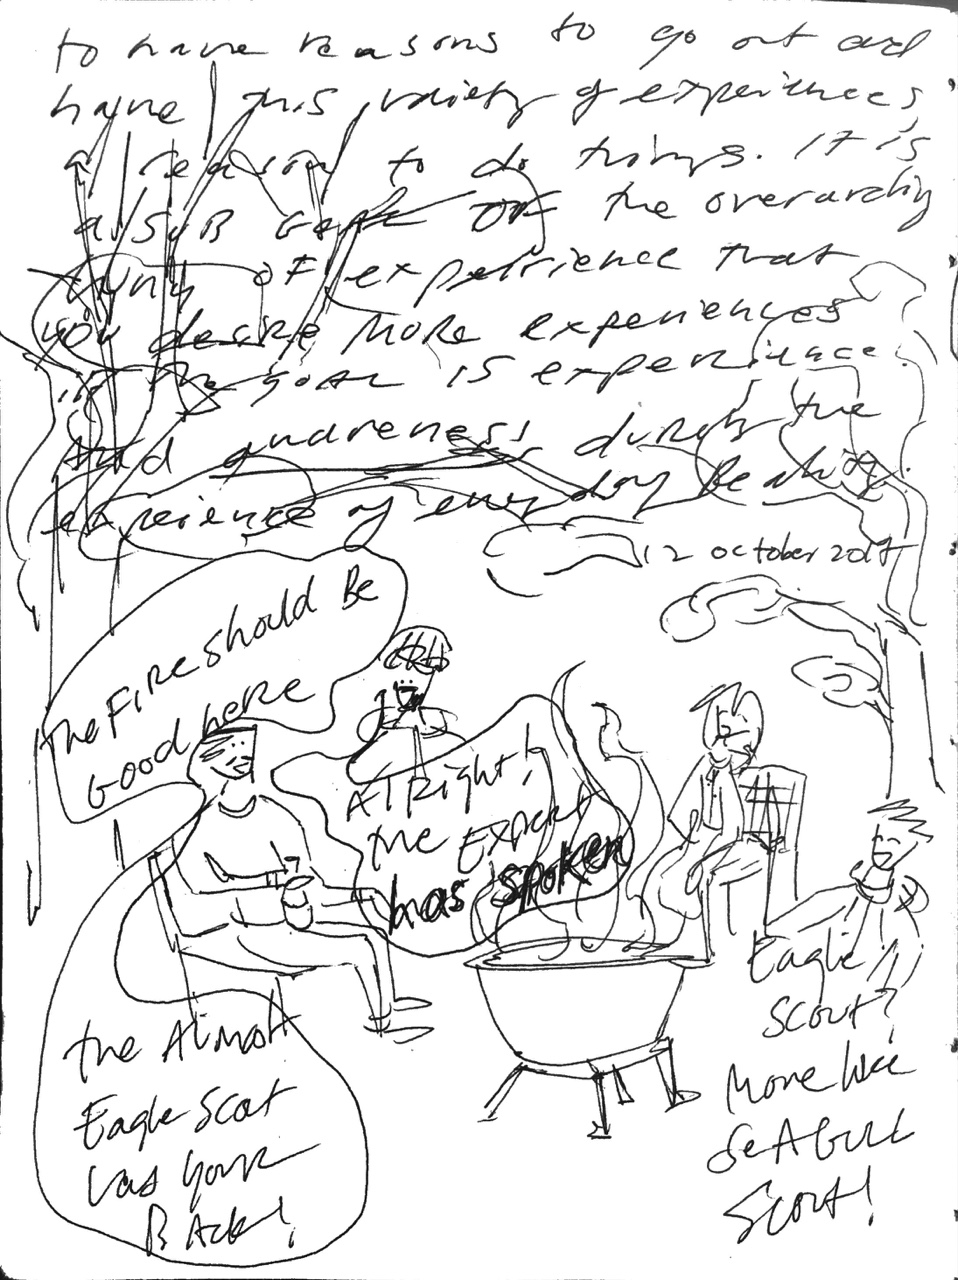 to have reasons to go out and
have this variety of experiences,
a reason to do things. It is
a SUB GOAL OF the overarching
thing of experience that
you desire More experiences
is the goal is experience.
And awareness during the
experience of every day Be
12 October 2017
The Fire should Be
Good here
Alright!
the Expert
has spoken
the Almost
Eagle Scout
has your
BAck!
Eagle
Scout?
More like
SeAGull
Scout!